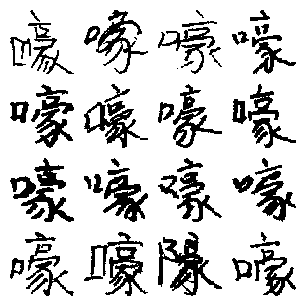 嚎嚎嚎嚎
嚎嚎嚎嚎
嚎嚎嚎嚎
嚎嚎嚎